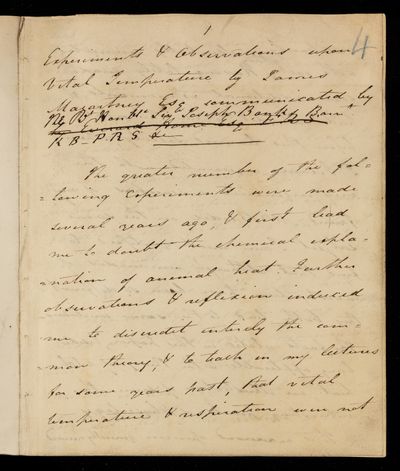 1
4
Experiments & Observations upon
Vital Temperature by James
Macartney Esq communicated by
Rt Honble Sir Joseph Banks Bart
Everard Home Esq
K B P R S &c
The greater number of the fol-
-lowing experiments were made
several years ago, & first lead
me to doubt the chemical expla-
-nation of animal heat. Further
observations & reflexion induced
me to discredit entirely the com-
-mon theory, & to teach in my lectures
for some years past, that vital
temperature & respiration were not